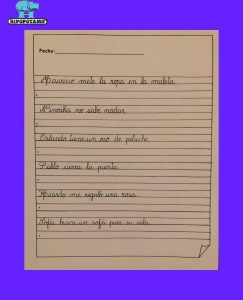 HIPOPOTAMO
Fecha:
Mauricio mete la ropa en la maleta.
no sabe nadar.
Orlando tiene un oso de peluche.
Pablo cierra la puerta.
Ricardo me regaló una rosa.
Sofía busca un sofá para su sala.